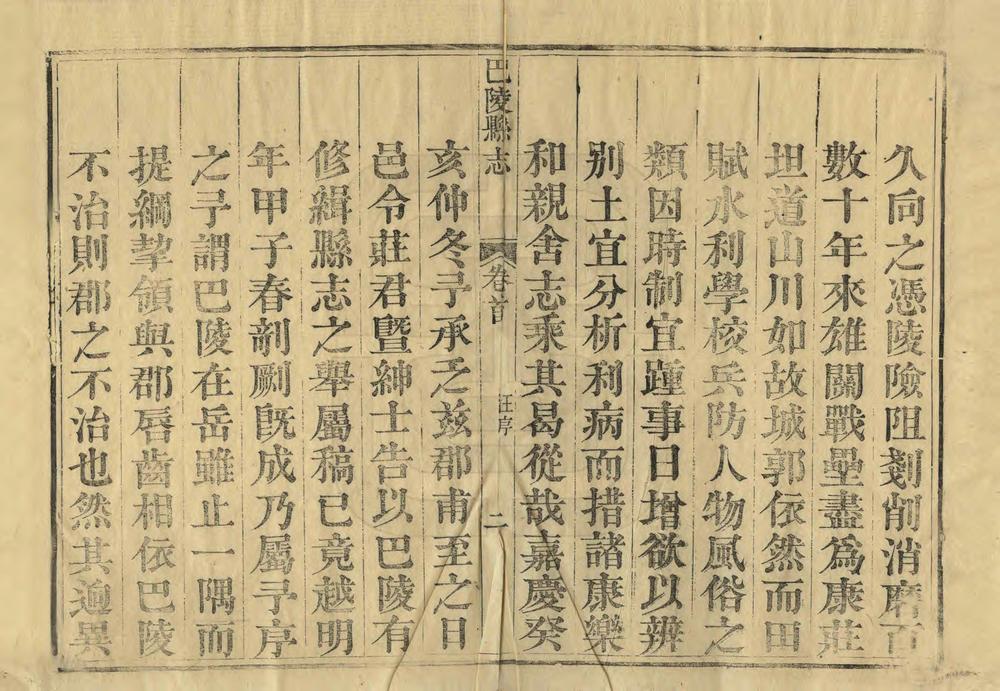 久同之憑陵險阻剗削消磨百
數十年來雄關戰壘盡為康莊
坦道山川如故城郭依然而田
賦水利學校兵防人物風俗之
類因時制宜踵事日增欲以辨
別土宜分析利病而措諸康樂
和親舍志乘其曷從哉嘉慶癸
巴陵縣志
卷首
汪序
二
亥仲冬予承乏茲郡甫至之日
邑令莊君暨紳士告以巴陵有
修緝縣志之舉屬稿已竟越明
年甲子春剞劂既成乃屬予序
之予謂巴陵在岳雖止一隅而
提綱挈領與郡唇齒相依巴陵
不治則郡之不治也然其迥異